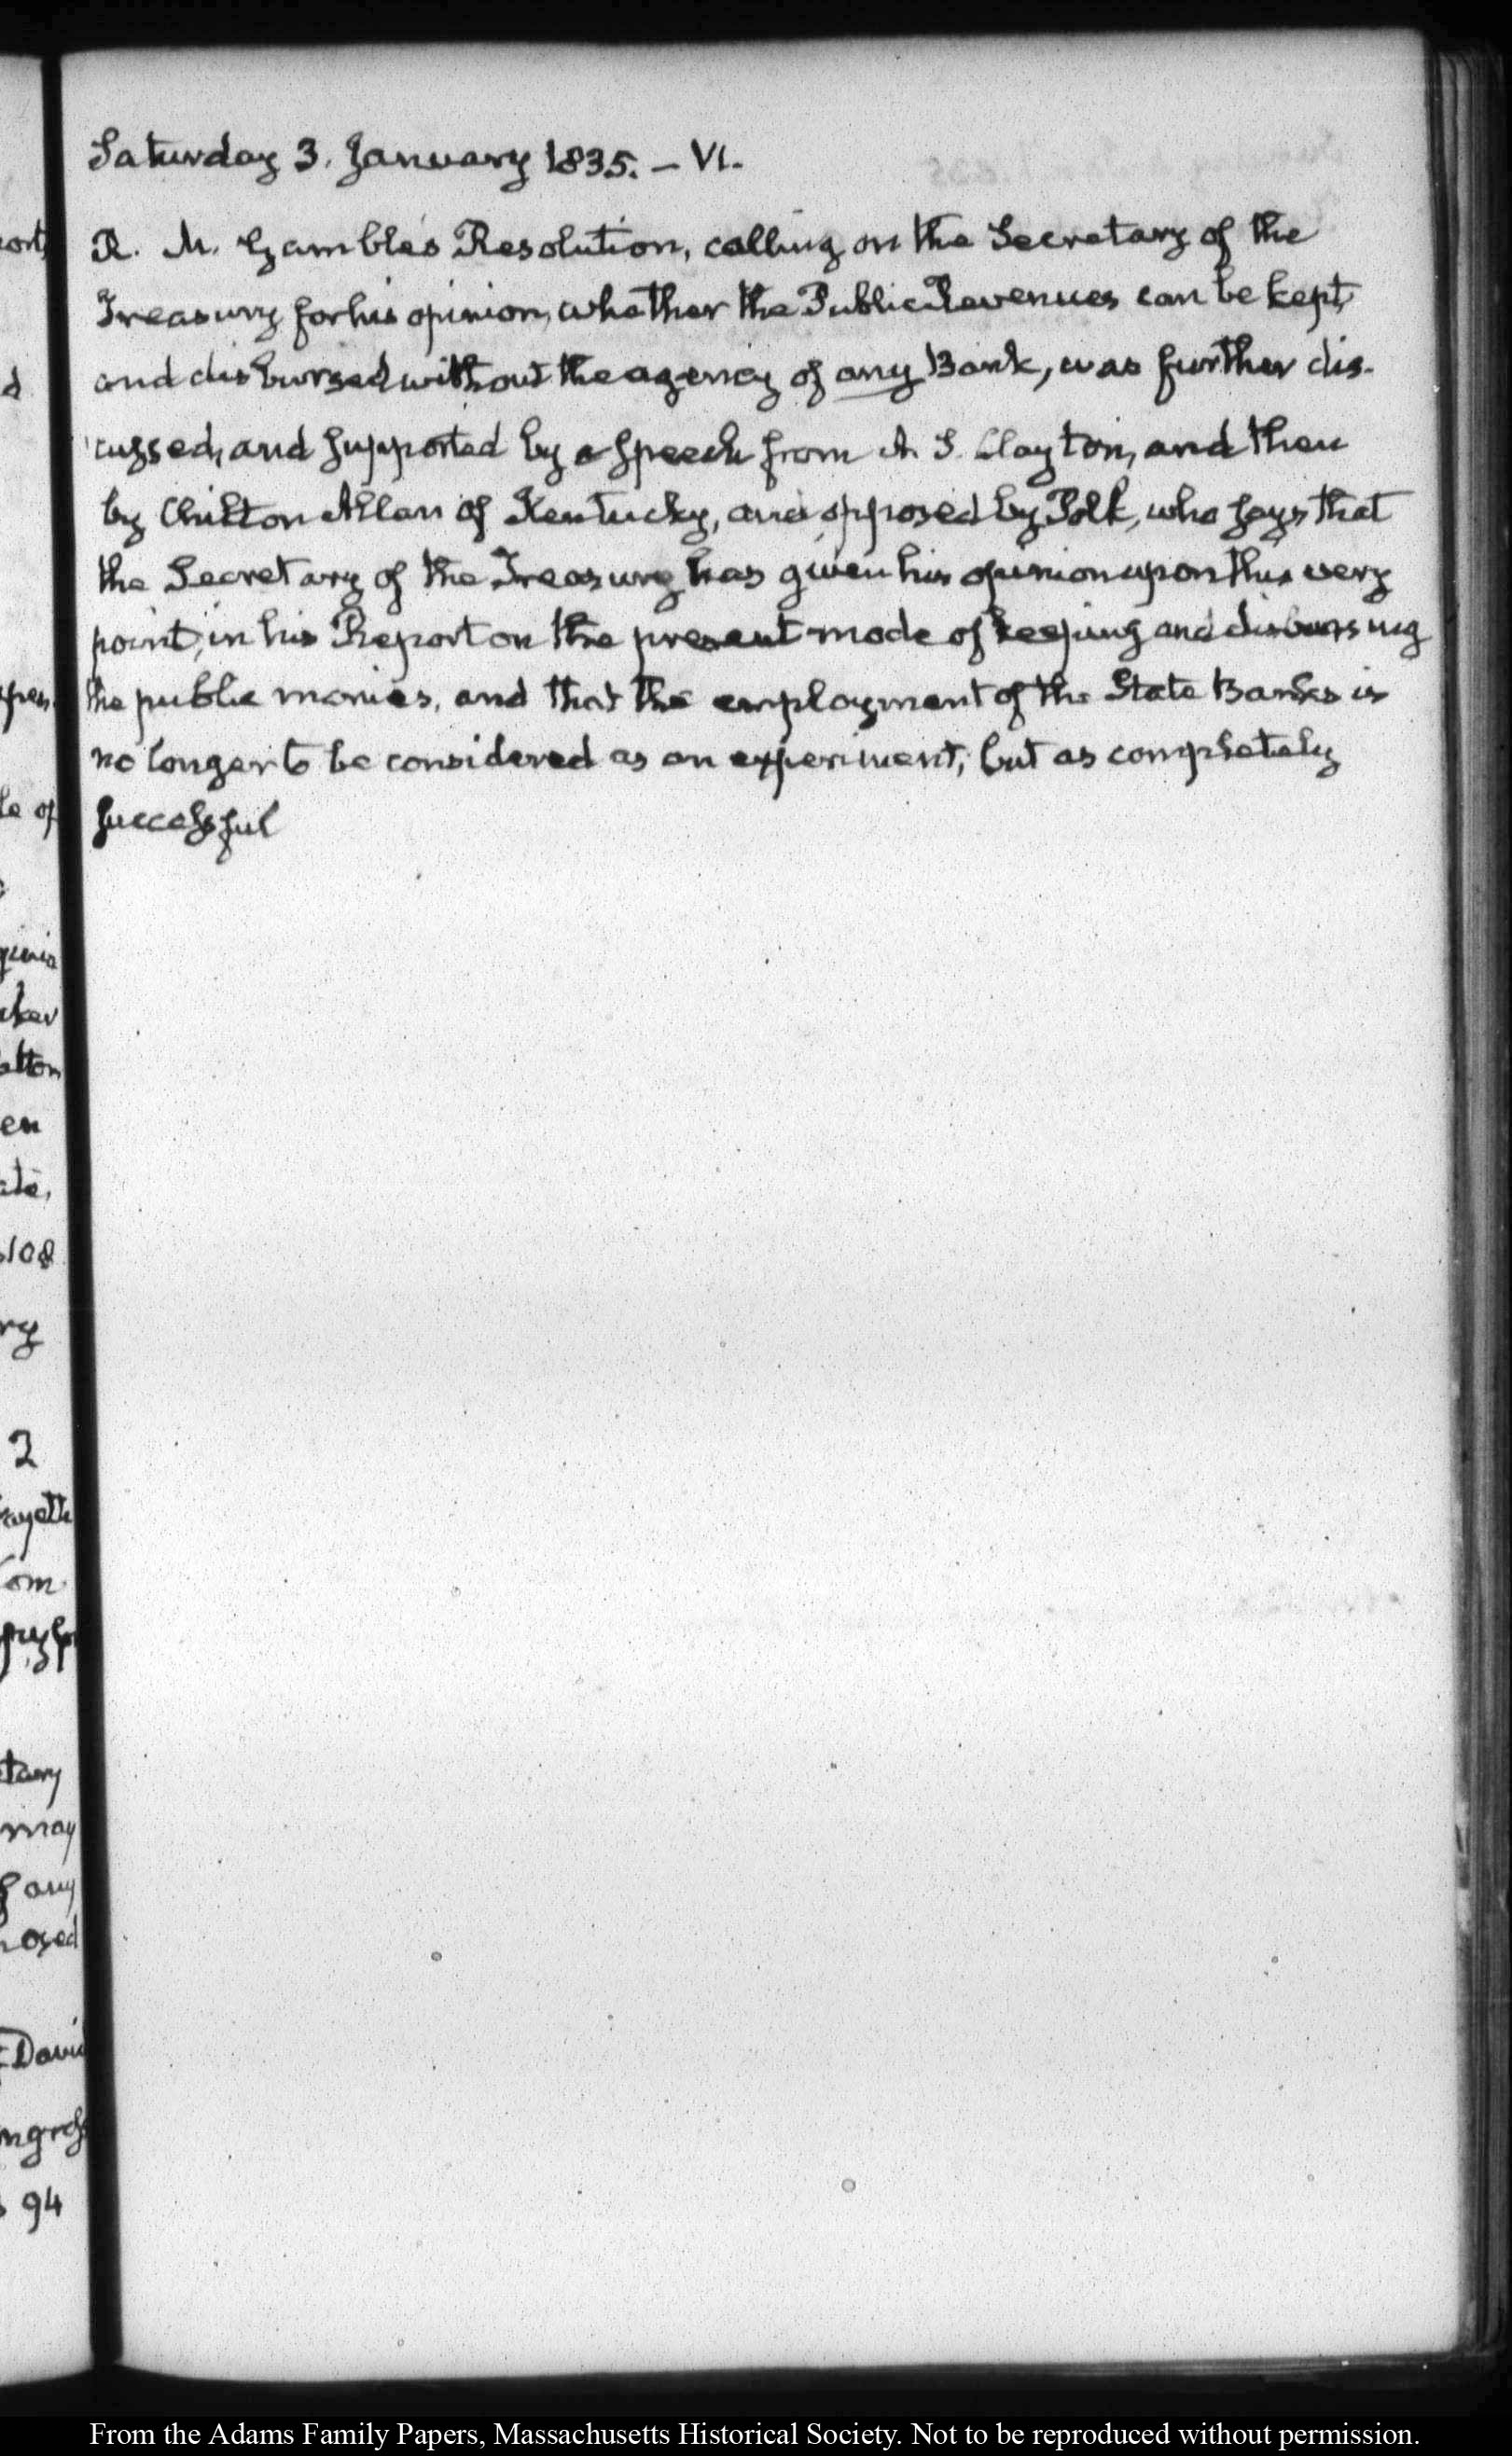 Saturday 3. January 1835. – VI.
R. M. Gamble's Resolution, calling on the Secretary of the
Treasury for his opinion, whether the Public Revenues can be kept,
and disbursed without the agency of any Bank, was further dis-
cussed, and supported by a speech from A. S. Clayton, and then
by Chilton Allan of Kentucky, and opposed by Polk, who says that
the Secretary of the Treasury has given his opinion upon this very
point, in his Report on the present mode of keeping and disbursing
the public monies, and that the employment of the State Banks is
no longer to be considered as an experiment, but as completely
successful
d
le of
en
108
2
may
any
David
94
From the Adams Family Papers, Massachusetts Historical Society. Not to be reproduced without permission.